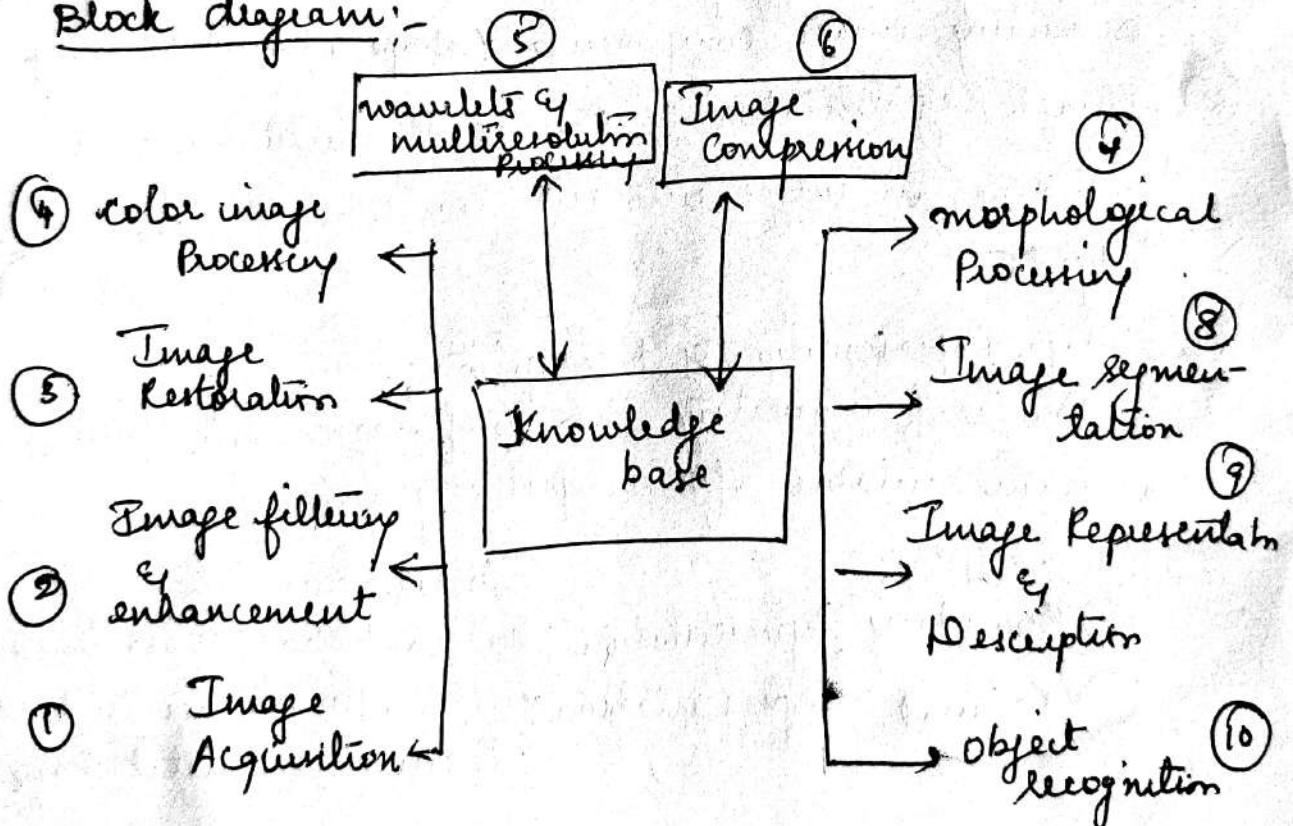 Block diagram:-
5
6
wavelets &
multiresolution
Processing
Image
Compression
4
color image
Processing
3
Image
Restoration
2
Image filtering
&
enhancement
1
Image
Acquisition
Knowledge
base
morphological
Processing
8
Image segmen-
tation
9
Image Representatn
&
Description
10
object
recognition